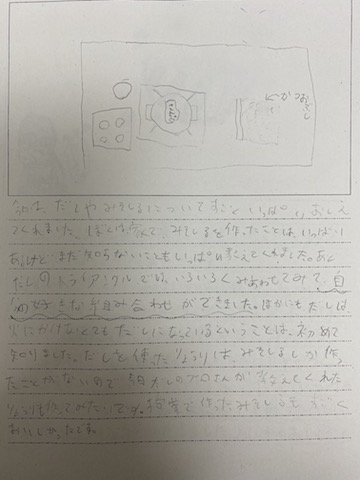 かつおぶし
今日は、だしやみそしるについてすごくいっぱいおしえ
てくれました。ぼくは家で、みそしるを作ったことは、いっぱい
あるけどまだ知らないこともいっぱい教えてくれました。あと
だしのトライアングルでは、いろいろくみあわせてみて、自
分の好きな組み合わせができました。ほかにもだしは、
火にかけなくてもだしになっているということは、初めて
知りました。だしを使ったりょうりは、みそしるしか作っ
たことがないので今日だしのプロさんが教えてくれた
りょうりも作ってみたいです。で作ったみそしるもすごく
おいしかったしね